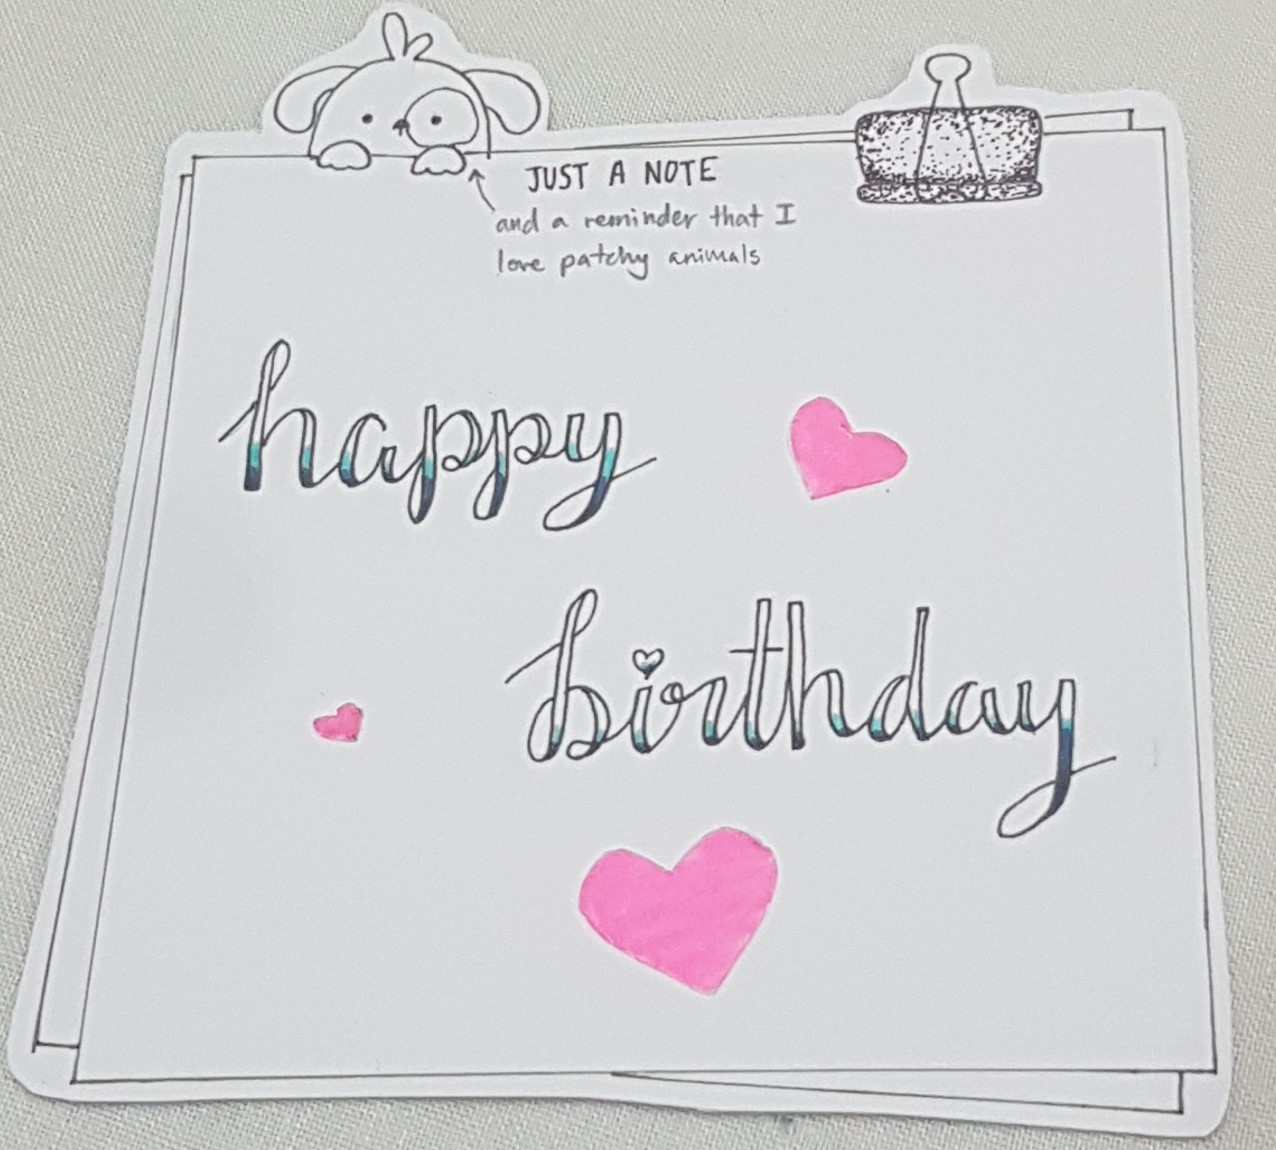 JUST A NOTE
and a reminder that I
love patchy animals
happy
birthday